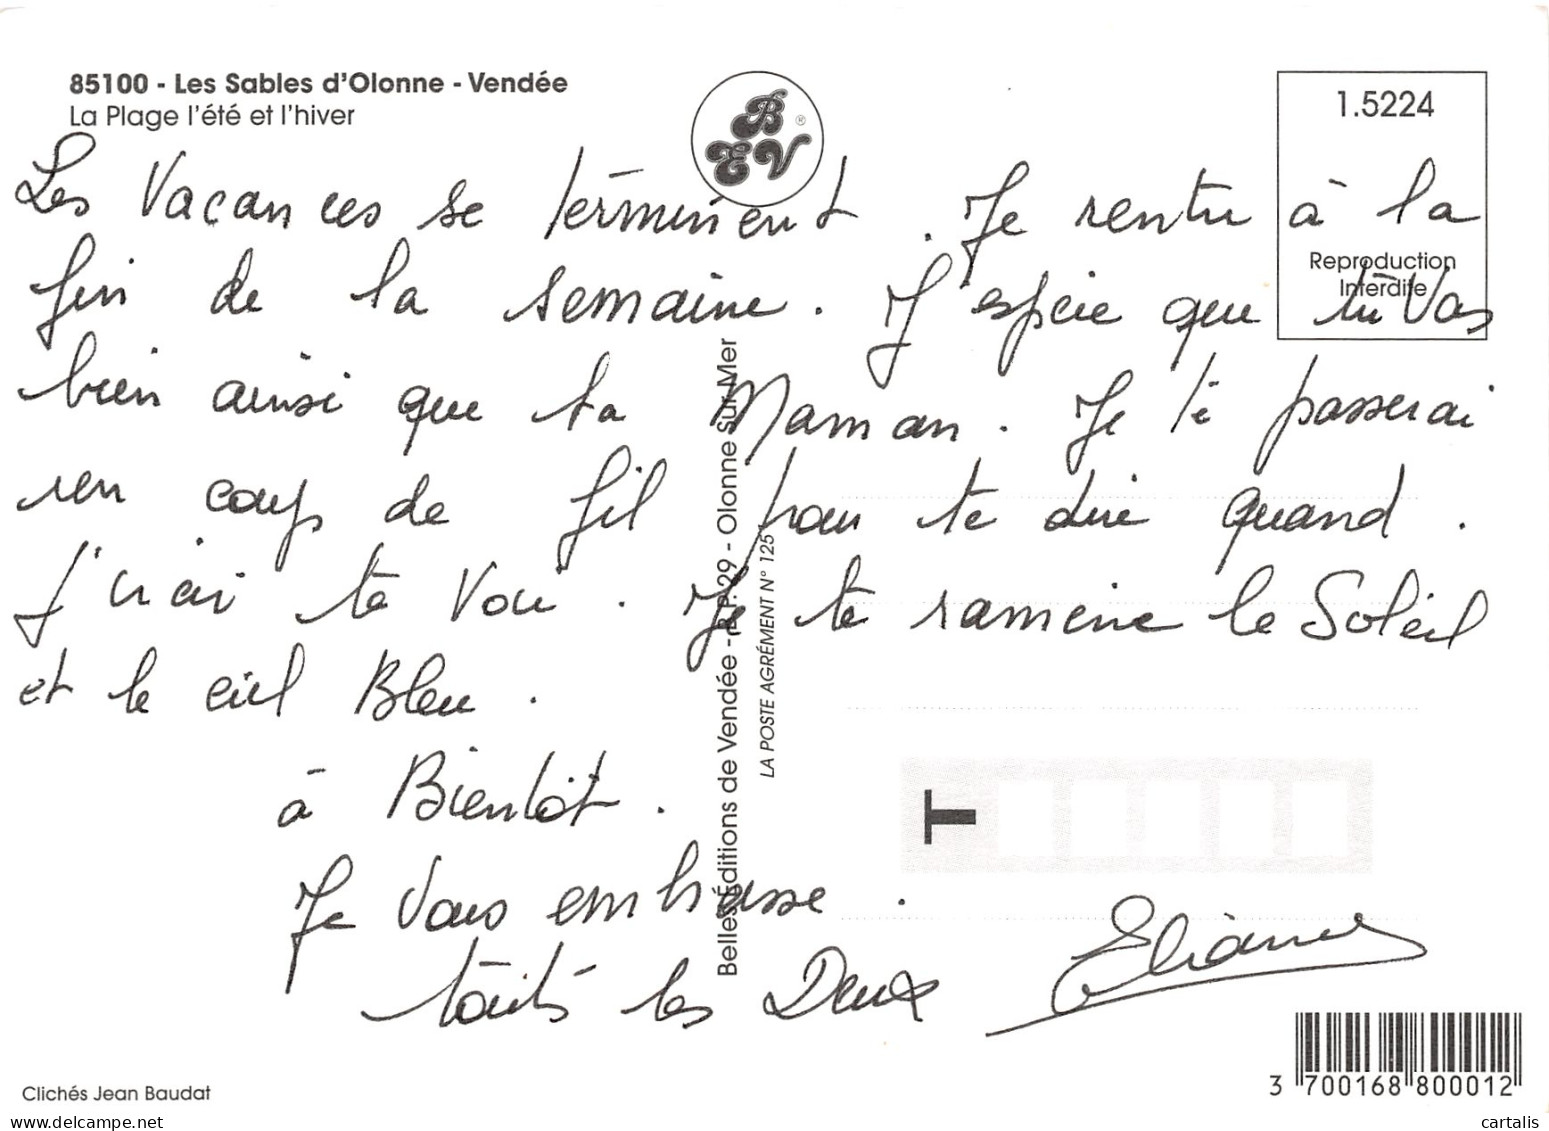 85100 - Les Sables d'Olonne - Vendée
La Plage l'été et l'hiver
B E V ®
1.5224
Reproduction
Interdite
Les Vacances se terminent. Je rentre à la
fin de la semaine. J'espère que tu vas
bien ainsi que ta Maman. Je te passerai
un coup de fil pour te dire quand.
J'irai te voir. Je te ramène le Soleil
et le ciel Bleu.
à Bientôt.
Je vous embrasse.
toutes les Deux
Eliane
Belles Éditions de Vendée - B.P. 29 - Olonne Sur Mer
LA POSTE AGRÉMENT N° 125
T
Clichés Jean Baudat
3 700168 800012
cartalis